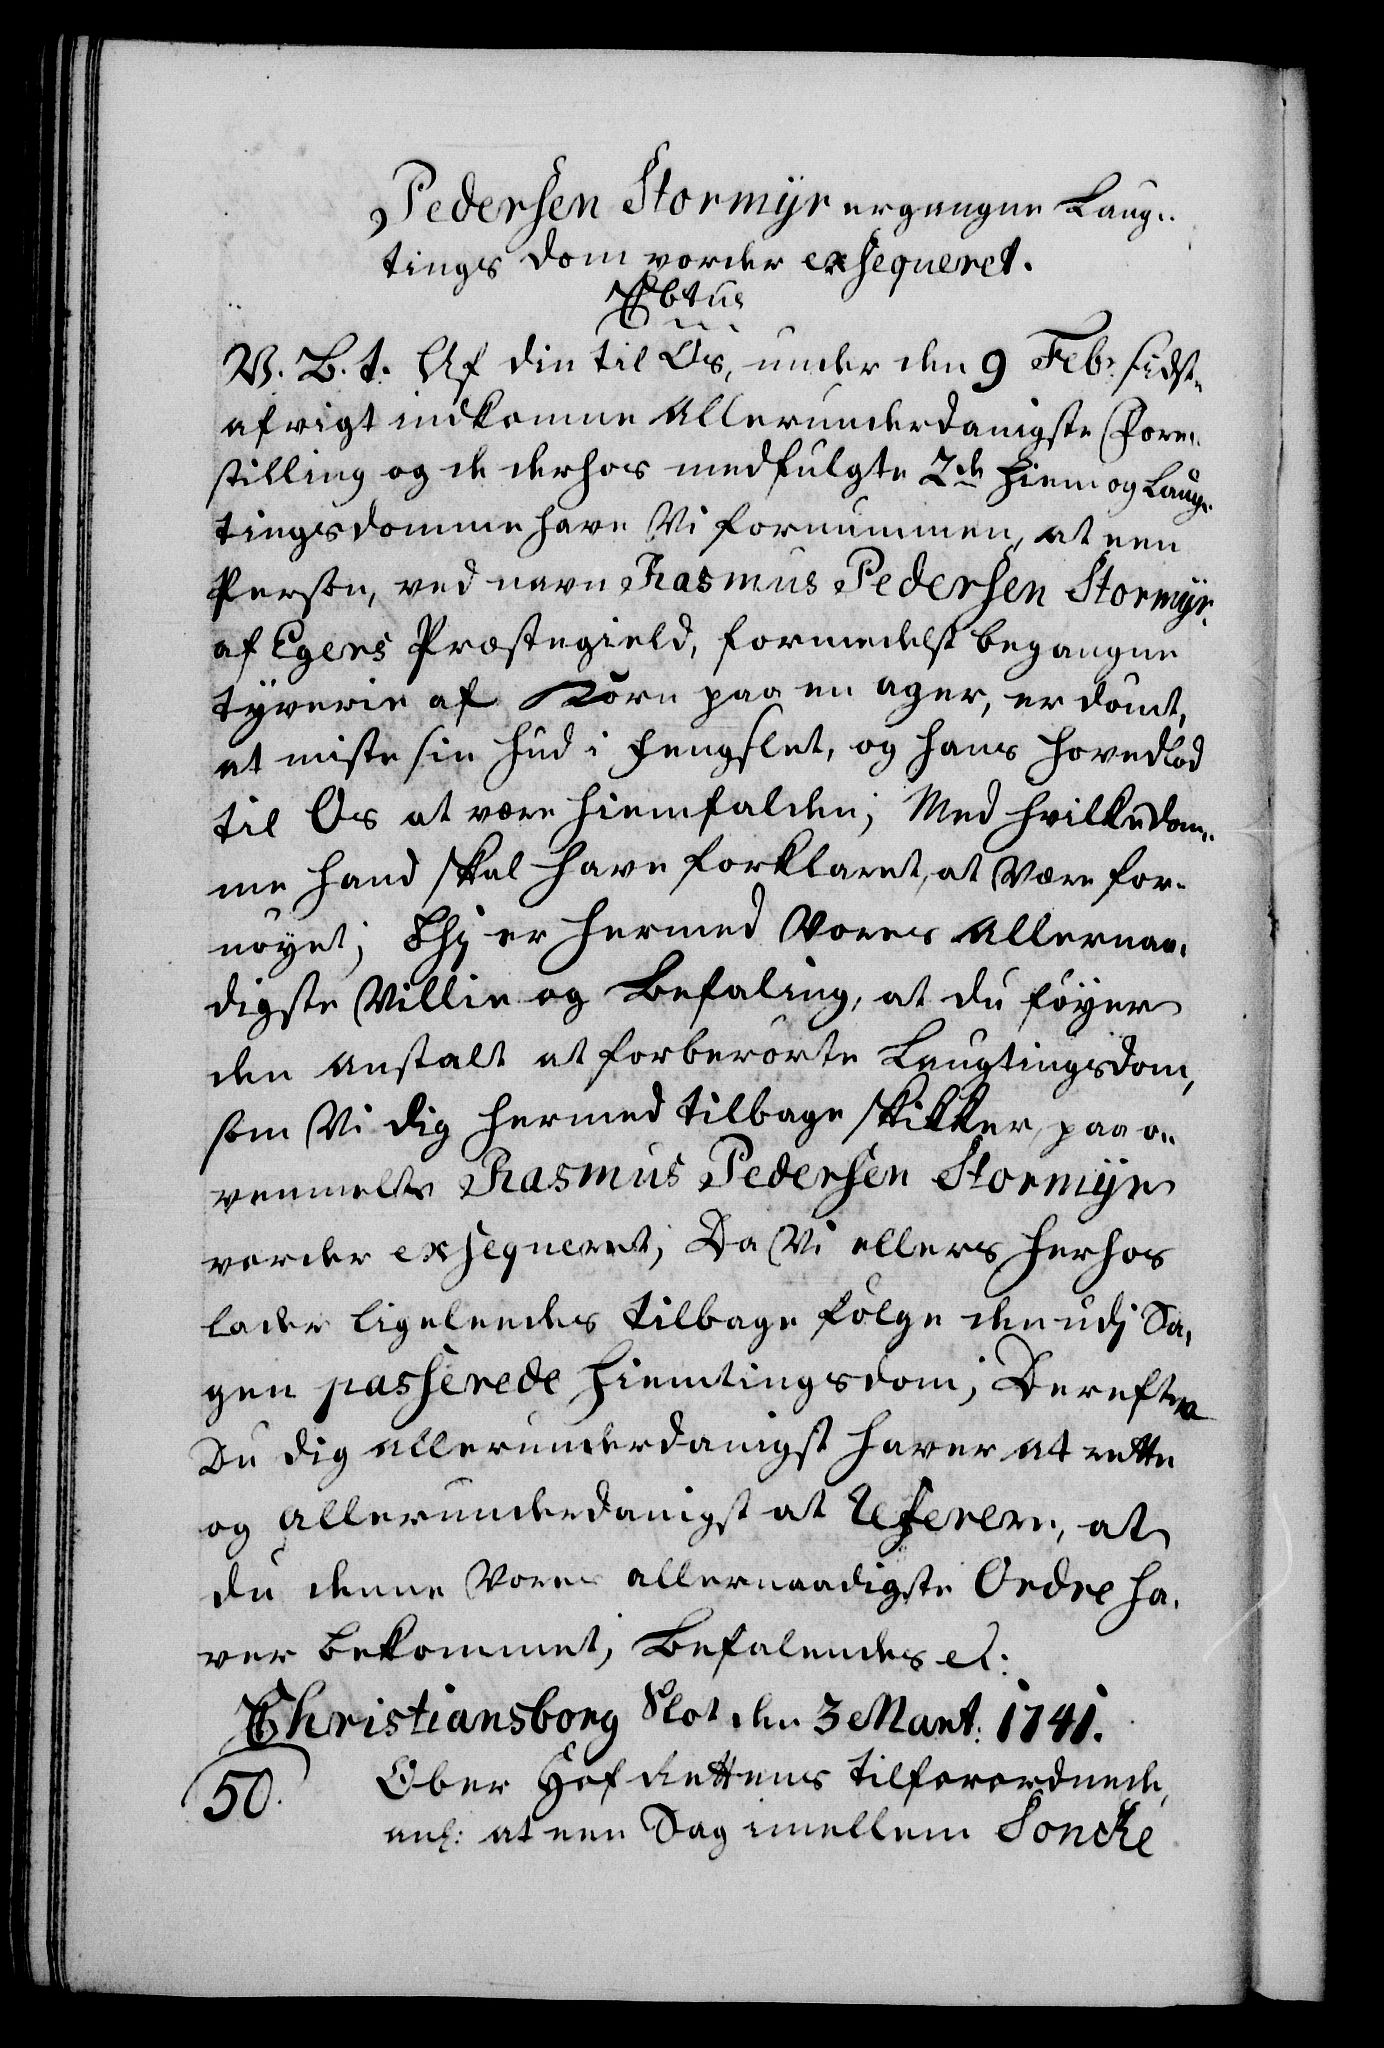 Pedersen Stormÿr ergangne Laug-
tings dom vorder exseqveret.
V. B. t. Af din til Os, under den 9 Febr: sidst-
afvigt indkomne Allerunderdanigste Fore-
stilling og de derhos medfulgte 2de Hiem og Laug-
tingsdomme have Vi fornummen, at een
Person, ved navn Rasmus Pedersen Stormÿr
af Egers Præstegield, formedelst begangne
tÿverie af Korn paa en ager, er dömt,
at miste sin hud i fengslet, og hans hovedlod
til Os at være hiemfalden; Med hvilke dom-
me hand skal have forklaret, at være for-
nöyet; Thj er hermed Vores Allernaa-
digste Villie og Befaling, at du föyer
den anstalt at forberörte Laugtingsdom,
som Vi dig hermed tilbage skikker, paa o-
venmelte Rasmus Pedersen Stormÿr
vorder exseqveret; Da Vi ellers herhos
lader ligeleedes tilbage fölge den udj Sa-
gen passerede Hiemtingsdom; Derefter
Du dig allerunderdanigst haver at rette
og allerunderdanigst at referere, at
du denne Vores allernaadigste Ordre ha-
ver bekommet; Befalendes etc:
Christiansborg Slot den 3 Mart: 1741.
50. Ober Hof Rettens tilforordnede,
anl: at een Sag imellem Soncke